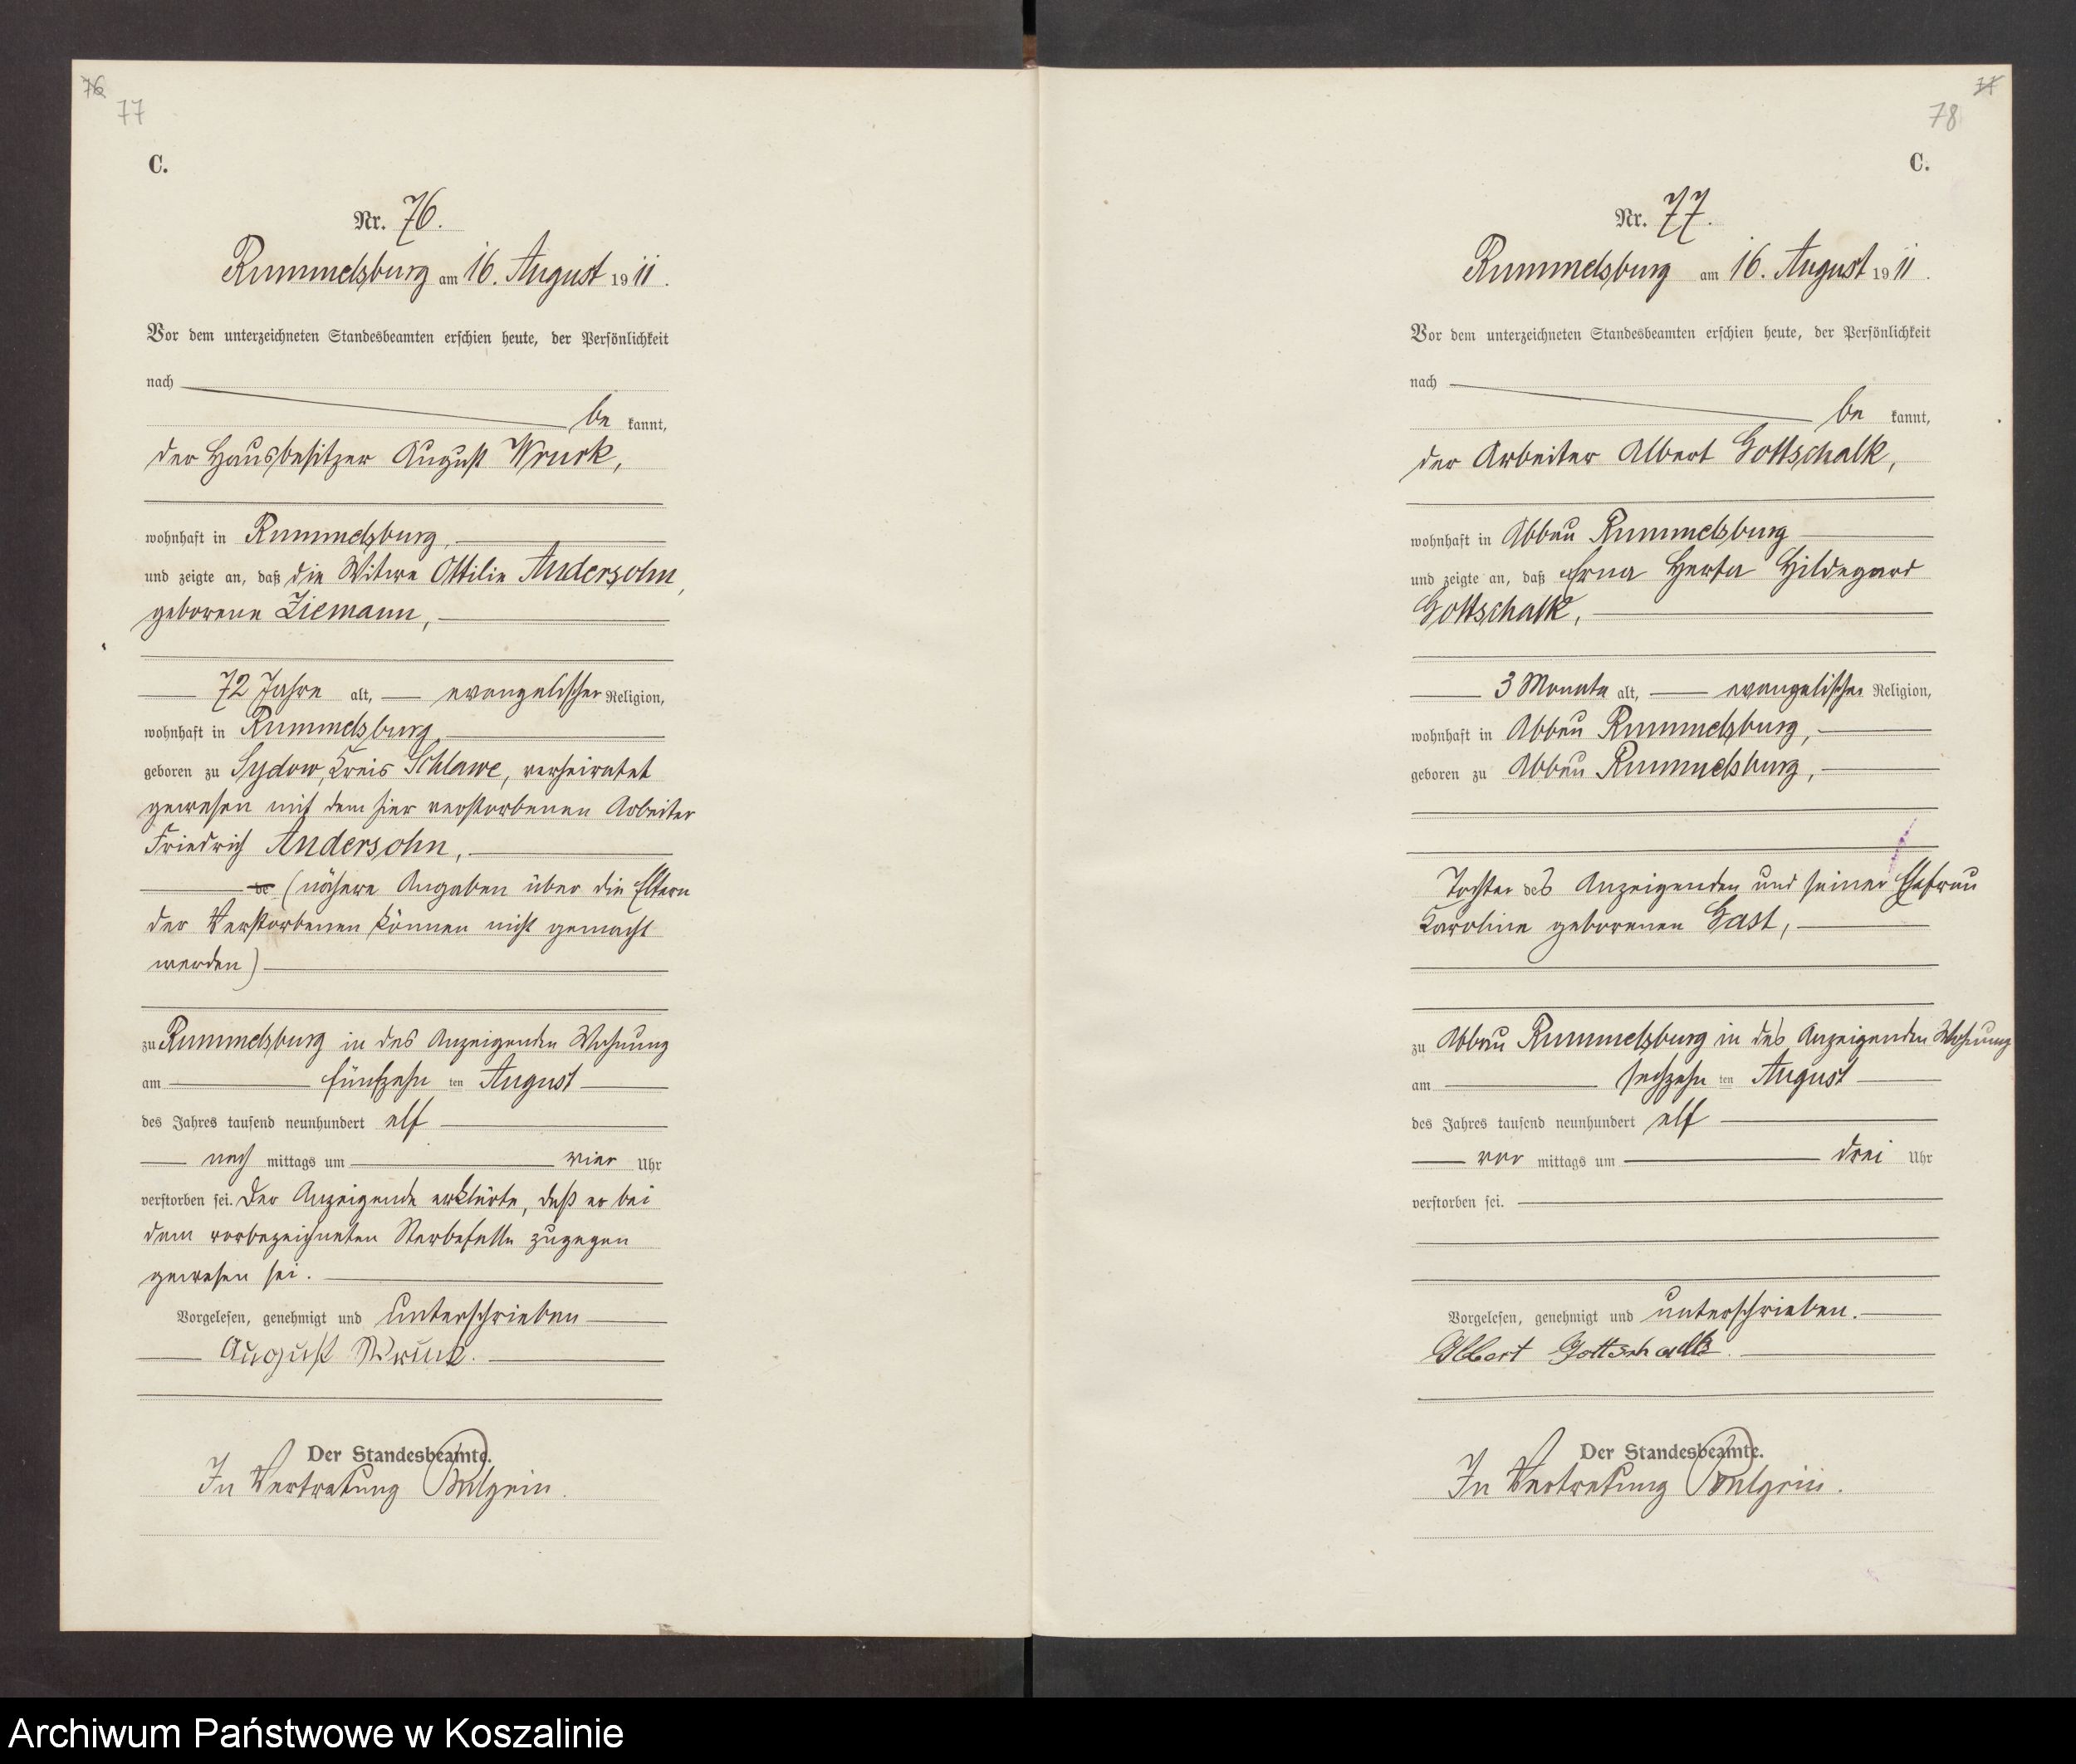 76
77
C.
Nr. 76.
Rummelsburg am 16. August 1911.
Vor dem unterzeichneten Standesbeamten erschien heute, der Persönlichkeit
nach
be kannt,
der Hausbesitzer August Wruck,
wohnhaft in Rummelsburg,
und zeigte an, daß die Witwe Ottilie Andersohn,
geborene Ziemann,
72 Jahre alt, evangelischer Religion,
wohnhaft in Rummelsburg
geboren zu Sydow, Kreis Schlawe, verheiratet
gewesen mit dem hier verstorbenen Arbeiter
Friedrich Andersohn,
de (nähere Angaben über die Eltern
der Verstorbenen können nicht gemacht
werden)
zu Rummelsburg in des Anzeigenden Wohnung
am fünfzehn ten August
des Jahres tausend neunhundert elf
nach mittags um vier Uhr
verstorben sei. Der Anzeigende erklärte, daß er bei
dem vorbezeichneten Sterbefalle zugegen
gewesen sei.
Vorgelesen, genehmigt und unterschrieben
August Wruck.
Der Standesbeamte.
In Vertretung
77
78
C.
Nr. 77.
Rummelsburg am 16. August 1911.
Vor dem unterzeichneten Standesbeamten erschien heute, der Persönlichkeit
nach
be kannt,
der Arbeiter Albert Gottschalk,
wohnhaft in Abbau Rummelsburg
und zeigte an, daß Erna Herta Hildegard
Gottschalk,
3 Monate alt, evangelischer Religion,
wohnhaft in Abbau Rummelsburg,
geboren zu Abbau Rummelsburg,
Tochter des Anzeigenden und seiner Ehefrau
Karoline geborenen Gast,
zu Abbau Rummelsburg in des Anzeigenden Wohnung
am sechzehn ten August
des Jahres tausend neunhundert elf
vor mittags um drei Uhr
verstorben sei.
Vorgelesen, genehmigt und unterschrieben.
Albert Gottschalk.
Der Standesbeamte.
In Vertretung
Archiwum Państwowe w Koszalinie